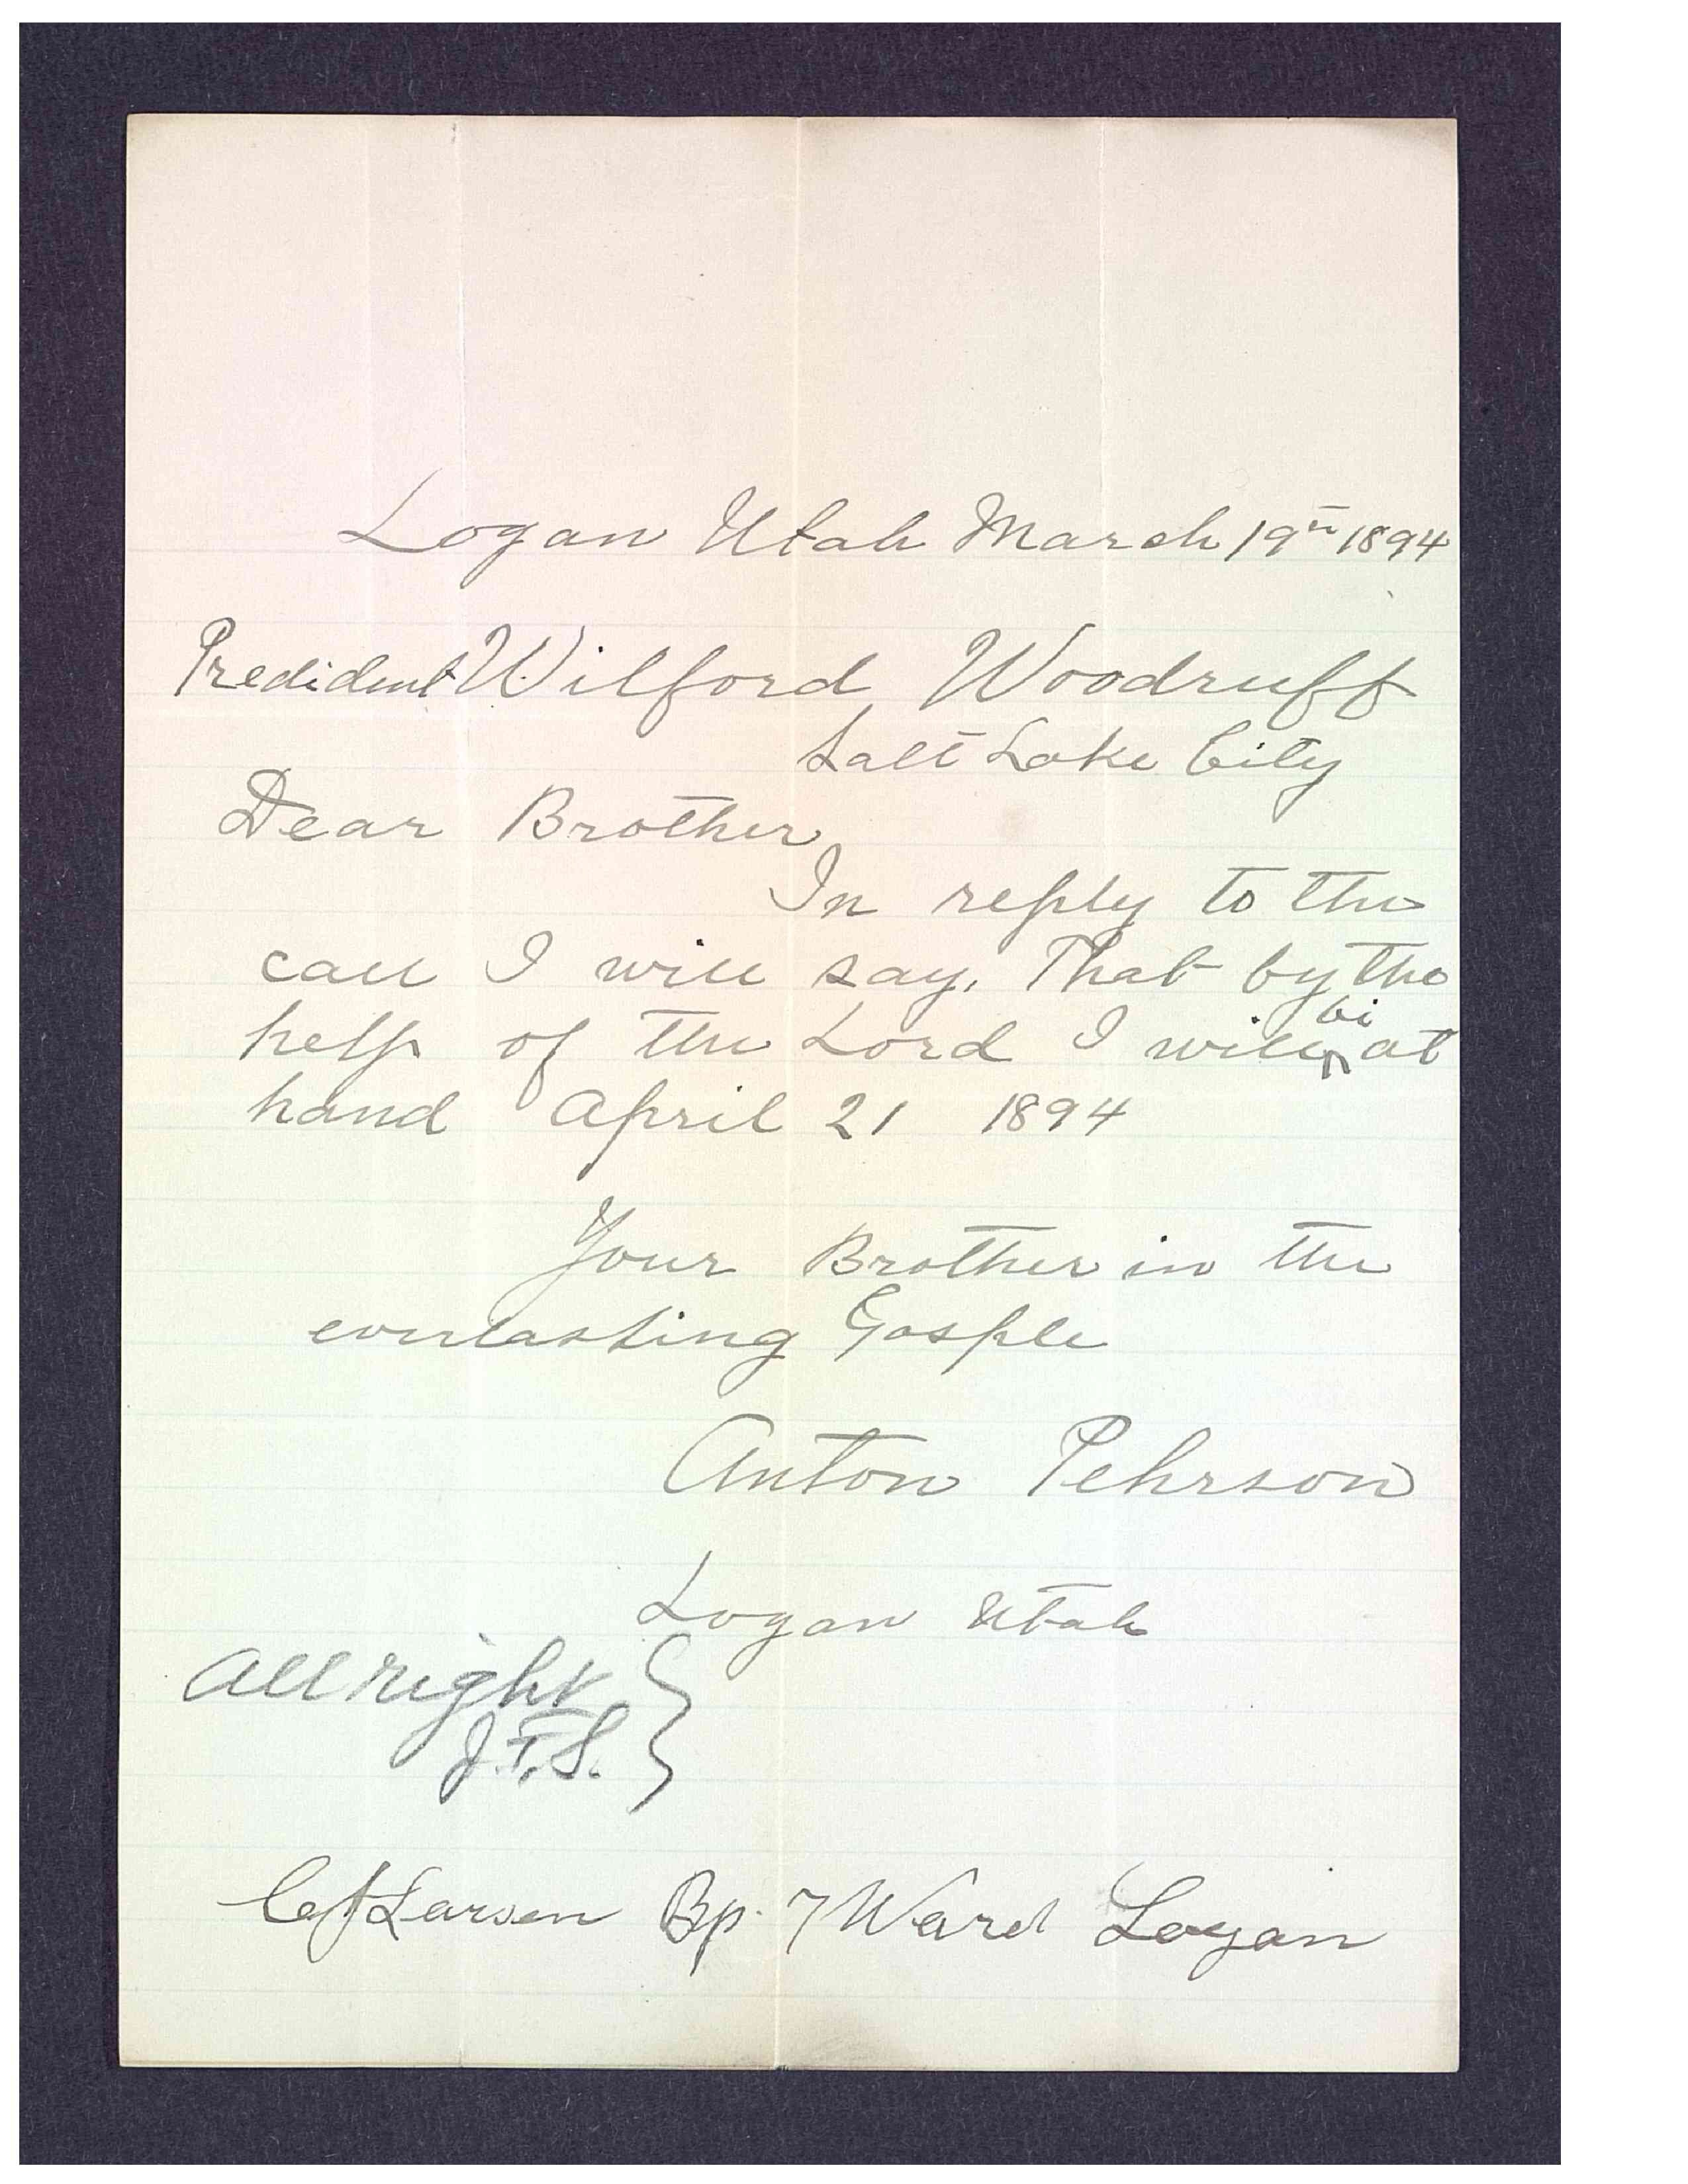 Logan Utah March 19th 1894
Predident Wilford Woodruff
Salt Lake City
Dear Brother
In reply to the
call I will say. That by the
help of the Lord I will bi at
hand April 21 1894
Your Brother in the
everlasting Gosple
Anton Pehrson
Logan Utah
All right
J.F.S.
C J Larsen Bp. 7 Ward Logan